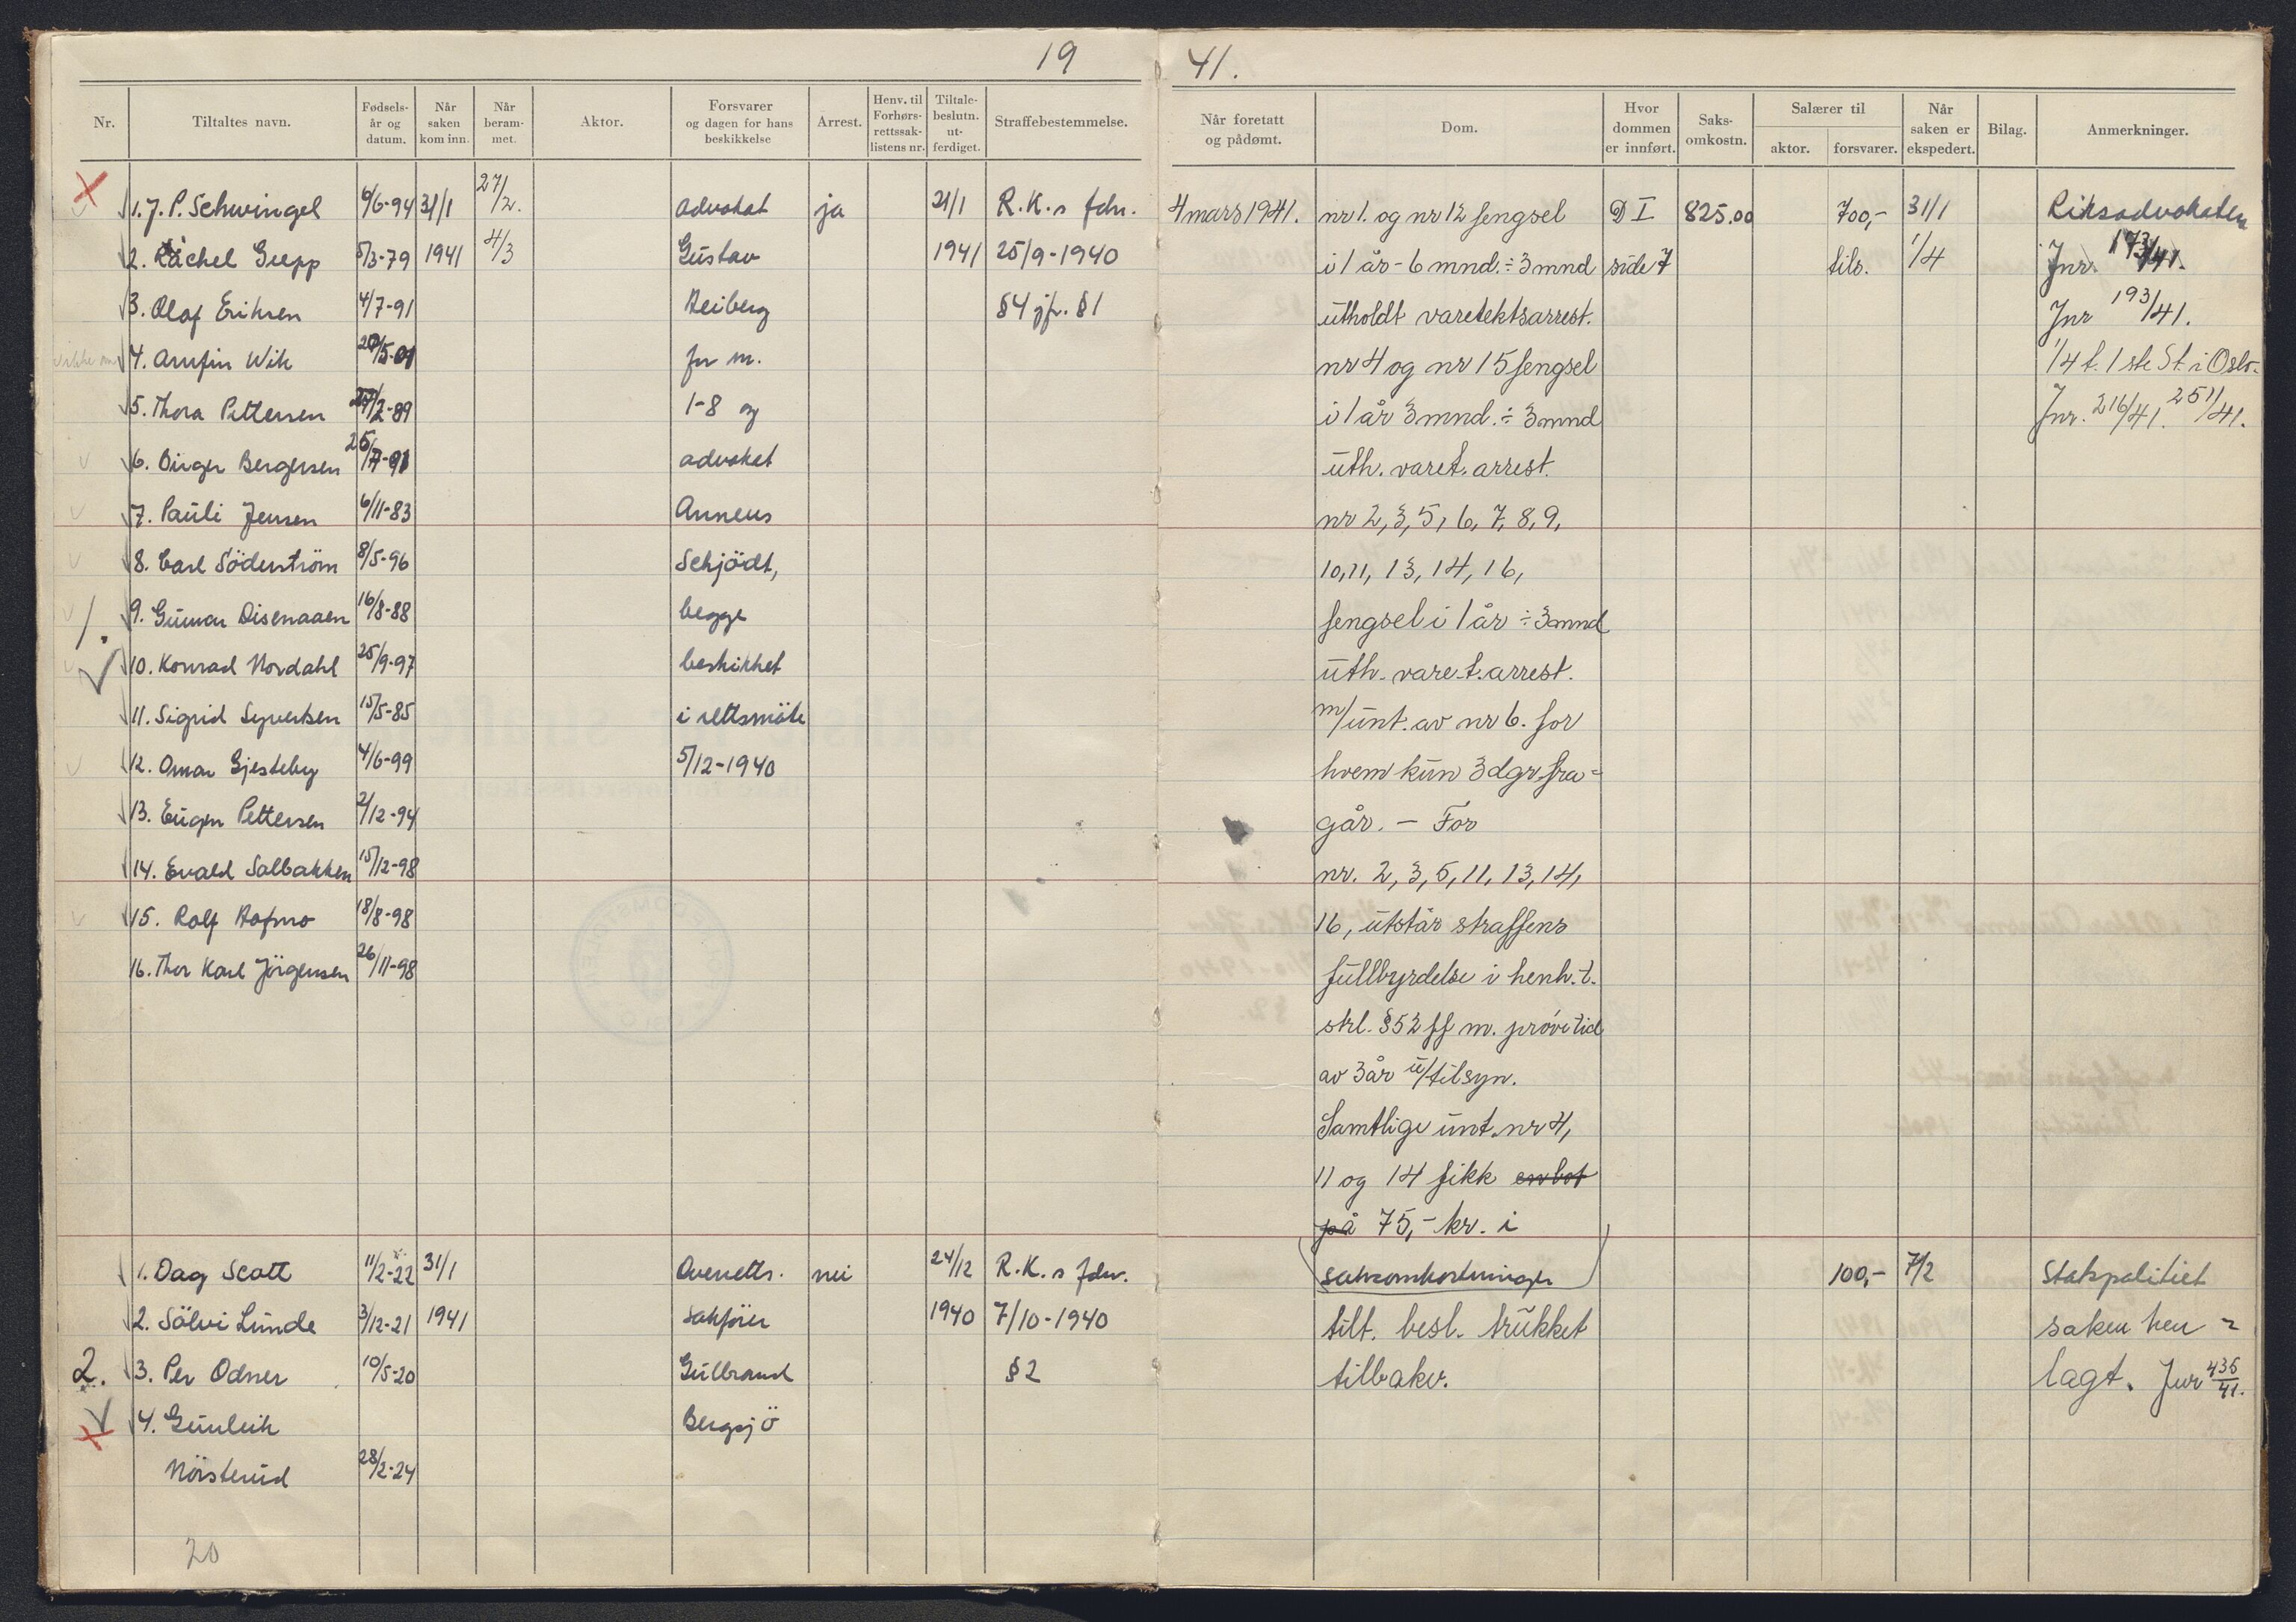 19 41.
Nr. Tiltaltes navn. Fødsels- år og datum. Når saken kom inn. Når beram- met. Aktor. Forsvarer og dagen for hans beskikkelse Arrest. Henv. til Forhørs- rettssak- listens nr. Tiltale- beslutn. ut- ferdiget. Straffebestemmelse.
Når foretatt og pådømt. Dom. Hvor dommen er innført. Saks- omkostn. Salærer til aktor. forsvarer. Når saken er ekspedert. Bilag. Anmerkninger.
1. J. P. Schwingel 6/6-94 31/1 27/2. advokat ja 21/1 R.K.s fdn. 4 mars 1941. nr 1. og nr 12 fengsel D I 825.00 700,- 31/1 Riksadvokaten
2. Rachel Grepp 5/3-79 1941 4/3 Gustav 1941 25/9-1940 i 1 år - 6 mnd. ÷ 3 mnd side 7 tils. 1/4 Jnr. 173/41.
3. Olaf Eriksen 4/7-91 Heiberg §4 jfr. §1 utholdt varetektsarrest. Jnr 193/41.
4. Arnfin Wik 20/5-01 for nr. nr 4 og nr 15 fengsel 1/4 t. 1ste St. i Oslo.
5. Thora Pettersen 27/2-89 1-8 og i 1 år 3 mnd. ÷ 3 mnd Jnr. 216/41. 251/41.
6. Birger Bergersen 25/7-91 advokat uth. varet. arrest.
7. Pauli Jensen 6/11-83 Annæus nr 2, 3, 5, 6, 7, 8, 9,
8. Carl Söderström 8/5-96 Schjödt, 10, 11, 13, 14, 16,
1. 9. Gunnar Disenaaen 16/8-88 begge fengsel i 1 år ÷ 3 mnd
10. Konrad Nordahl 25/9-97 beskikket uth. varet. arrest.
11. Sigrid Syvertsen 15/5-85 i rettsmöte m/unt. av nr 6. for
12. Omar Gjesteby 4/6-99 5/12-1940 hvem kun 3 dgr fra-
13. Eugen Pettersen 2/12-94 går. - For
14. Evald Solbakken 15/12-98 nr. 2, 3, 5, 11, 13, 14,
15. Rolf Hofmo 18/8-98 16, utstår straffens
16. Thor Karl Jörgensen 26/11-98 fullbyrdelse i henh. t.
strl. §52 ff m. prövetid
av 3 år u/tilsyn.
Samtlige unt. nr 4,
11 og 14 fikk en bot
på 75,- kr. i
saksomkostninger
1. Dag Scott 11/2-22 31/1 Overretts. nei 24/12 R.K.s fdn. 100,- 7/2 Statspolitiet
2. Sölvi Lunde 3/12-21 1941 sakförer 1940 7/10-1940 tilt. besl. trukket saken hen-
2. 3. Per Odner 10/5-20 Gulbrand §2 tilbake. lagt. Jnr 436/41.
4. Gunleik Bergsjö
Nörsterud 28/2-24
20